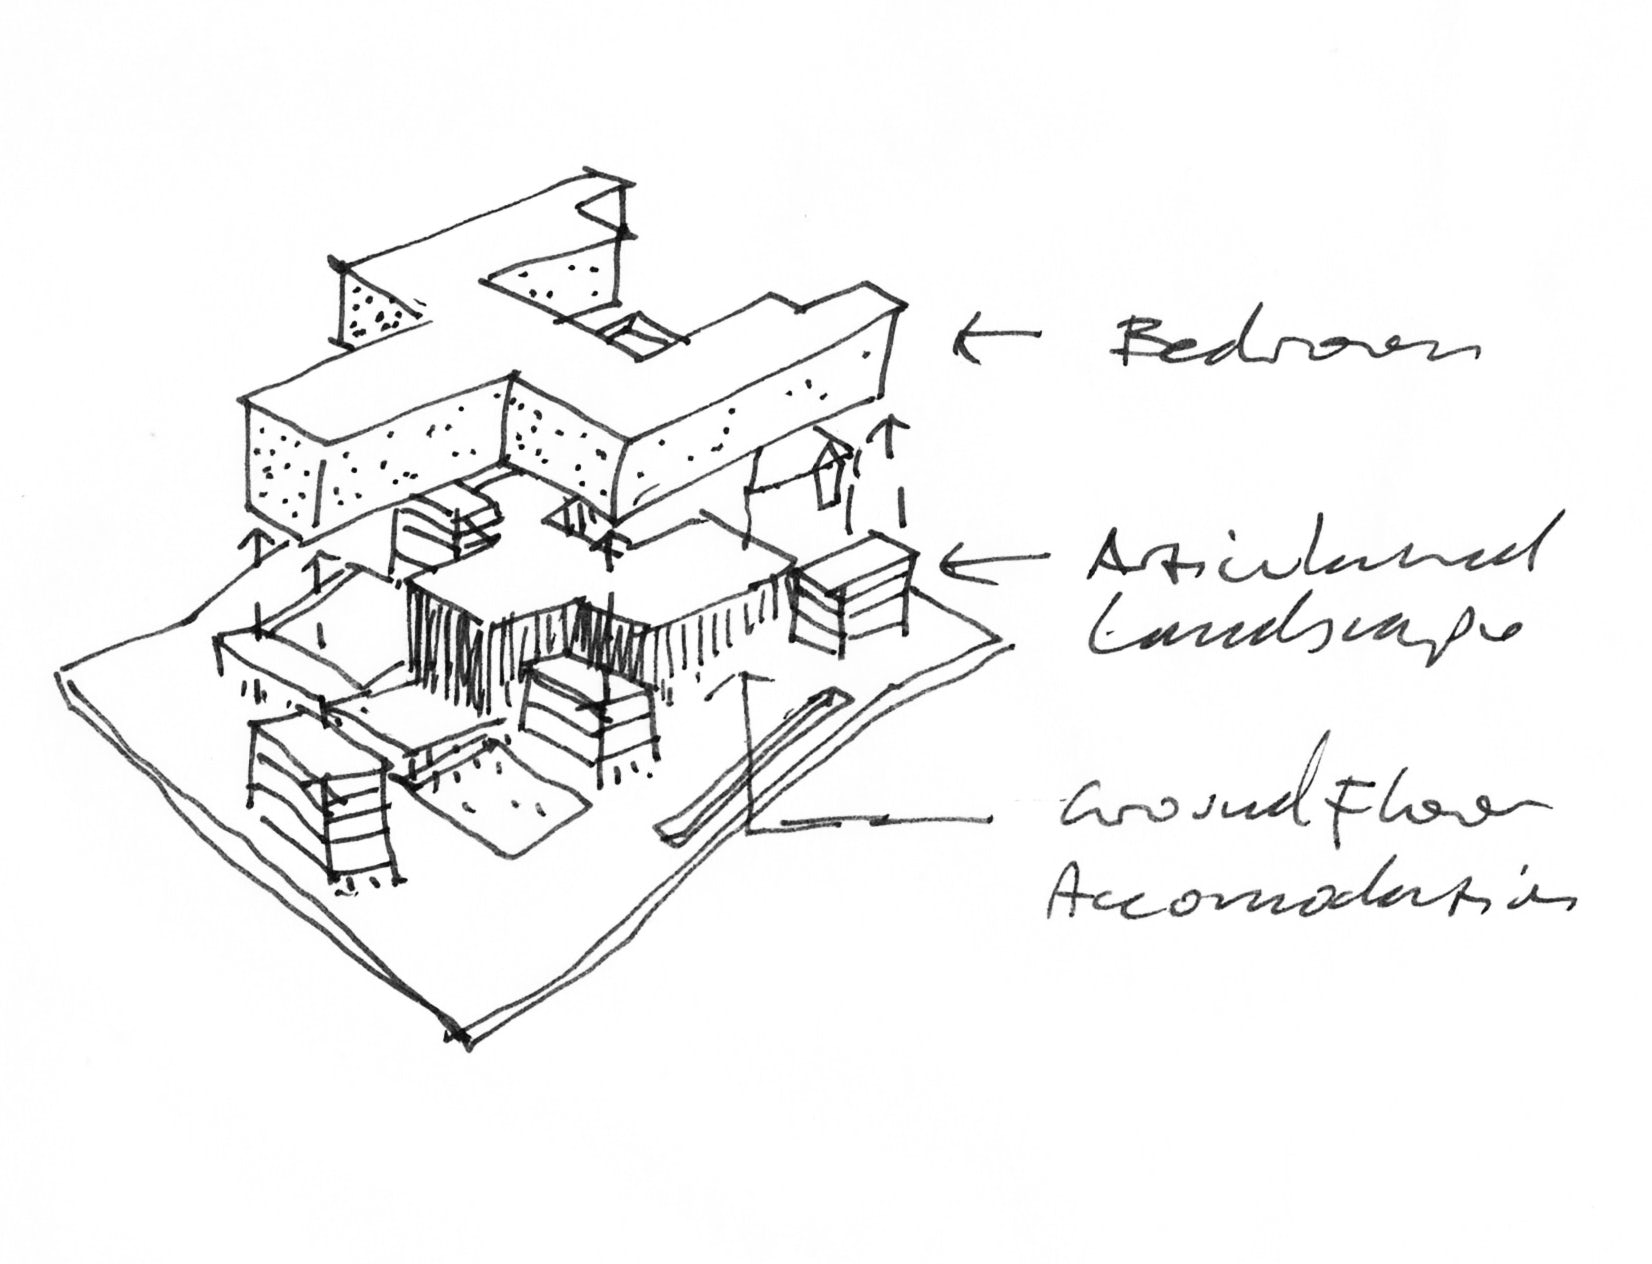 Bedrooms
Articulated
Landscape
Ground Floor
Accomodation